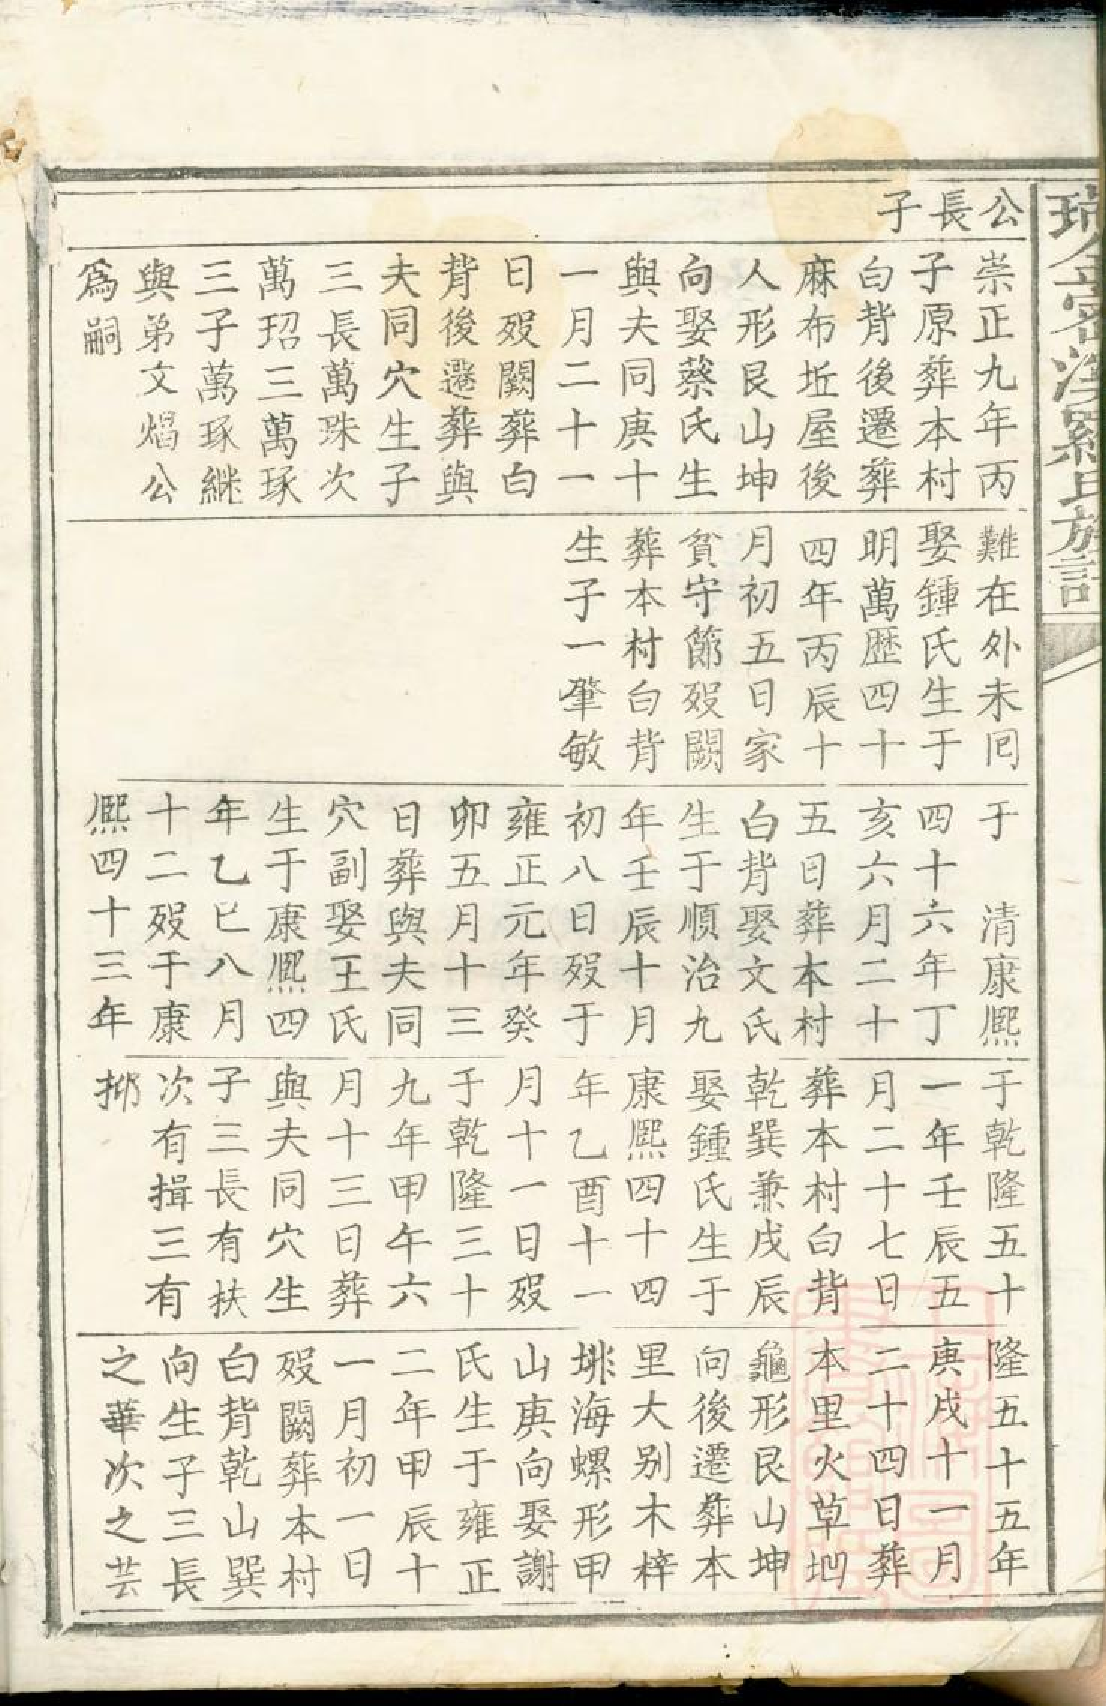 公長子
崇正九年丙
子原葬本村
白背後遷葬
麻布坵屋後
人形艮山坤
向娶蔡氏生
與夫同庚十
一月二十一
日殁闕葬白
背後遷葬與
夫同穴生子
三長萬珠次
萬玿三萬琢
三子萬琢継
與弟文焻公
爲嗣
難在外未囘
娶鍾氏生于
明萬歴四十
四年丙辰十
月初五日家
貧守節殁闕
葬本村白背
生子一肇敏
于 清康熈
四十六年丁
亥六月二十
五日葬本村
白背娶文氏
生于順治九
年壬辰十月
初八日殁于
雍正元年癸
卯五月十三
日葬與夫同
穴副娶王氏
生于康熈四
年乙巳八月
十二殁于康
熈四十三年
于乾隆五十
一年壬辰五
月二十七日
葬本村白背
乾巽兼戌辰
娶鍾氏生于
康熈四十四
年乙酉十一
月十一日殁
于乾隆三十
九年甲午六
月十三日葬
與夫同穴生
子三長有扶
次有揖三有
揤
隆五十五年
庚戌十一月
二十四日葬
本里火草坳
龜形艮山坤
向後遷葬本
里大别木梓
垗海螺形甲
山庚向娶謝
氏生于雍正
二年甲辰十
一月初一日
殁闕葬本村
白背乾山巽
向生子三長
之華次之芸
羅氏族譜